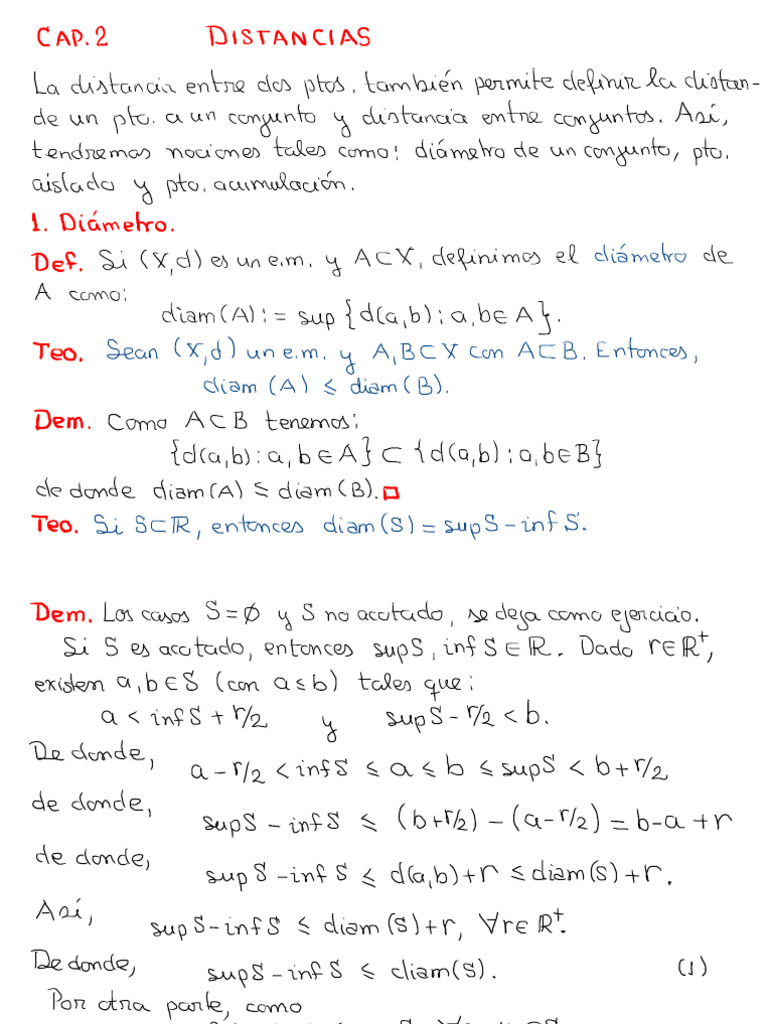 CAP. 2 DISTANCIAS
La distancia entre dos ptos. también permite definir la distan-
de un pto. a un conjunto y distancia entre conjuntos. Así,
tendremos nociones tales como: diámetro de un conjunto, pto.
aislado y pto. acumulación.
1. Diámetro.
Def. Si (X,d) es un e.m. y A⊂X, definimos el diámetro de
A como:
diam(A) := sup {d(a,b) : a,b∈A}.
Teo. Sean (X,d) un e.m. y A,B⊂X con A⊂B. Entonces,
diam (A) ≤ diam(B).
Dem. Como A⊂B tenemos:
{d(a,b) : a,b∈A} ⊂ {d(a,b) : a,b∈B}
de donde diam(A) ≤ diam(B). □
Teo. Si S⊂ℝ, entonces diam(S) = sup S - inf S.
Dem. Los casos S=∅ y S no acotado, se deja como ejercicio.
Si S es acotado, entonces sup S, inf S∈ℝ. Dado r∈ℝ⁺,
existen a,b∈S (con a≤b) tales que:
a < inf S + r/2 y sup S - r/2 < b.
De donde,
a - r/2 < inf S ≤ a ≤ b ≤ sup S < b + r/2
de donde,
sup S - inf S ≤ (b+r/2) - (a-r/2) = b-a+r
de donde,
sup S - inf S ≤ d(a,b)+r ≤ diam(S)+r.
Así,
sup S - inf S ≤ diam(S)+r, ∀r∈ℝ⁺.
De donde,
sup S - inf S ≤ diam(S). (1)
Por otra parte, como